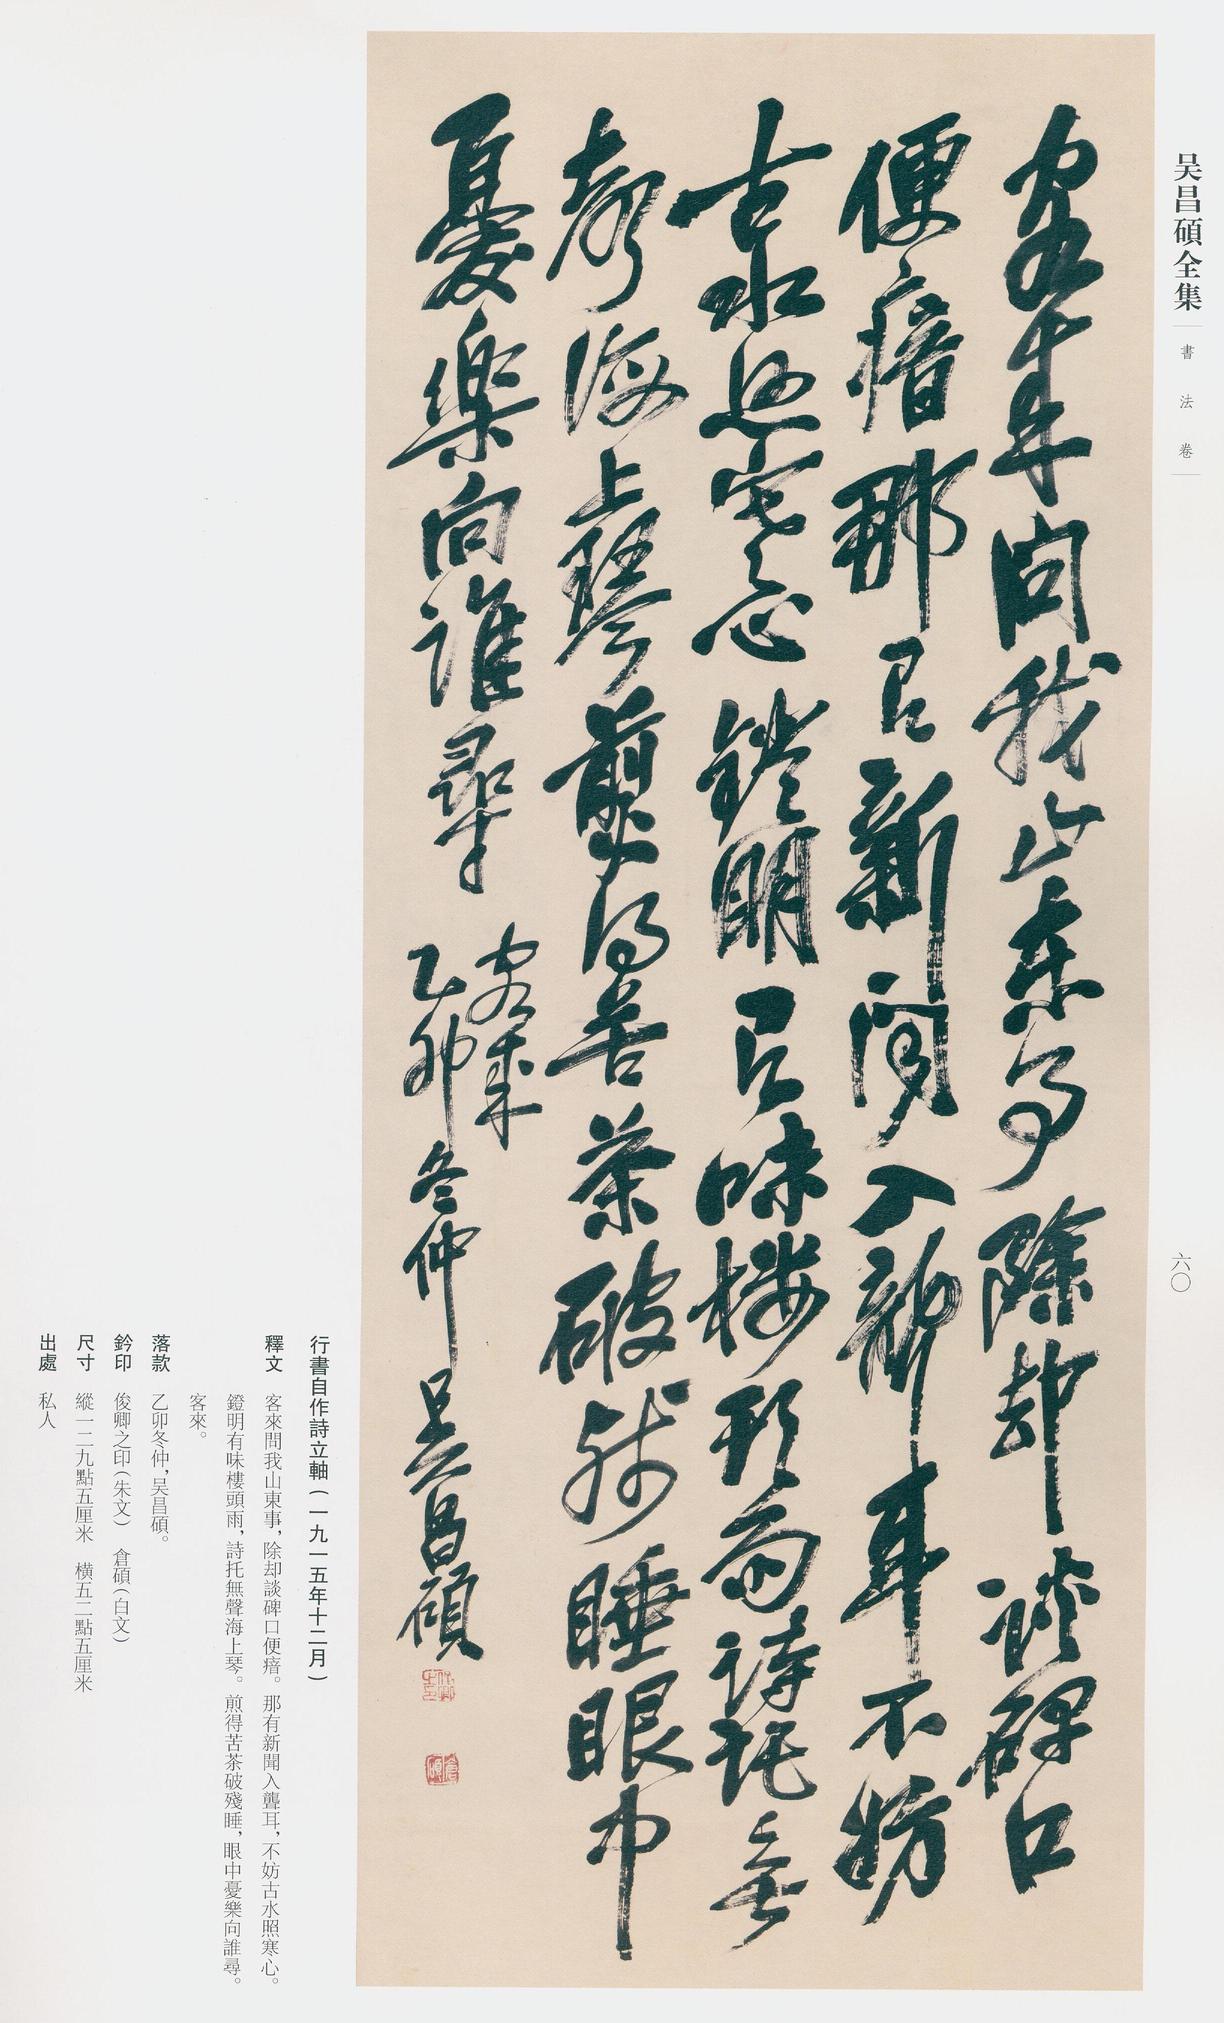 吴昌碩全集
書法卷
六〇
客來問我山東事除却談碑口
便瘖那有新聞入聾耳不妨
古水照寒心鐙明有味樓頭雨詩託無
聲海上琴煎得苦茶破殘睡眼中
憂樂向誰尋
客來
乙卯冬仲吳昌碩
倉碩
行書自作詩立軸(一九一五年十二月)
釋文 客來問我山東事,除却談碑口便瘖。那有新聞入聾耳,不妨古水照寒心。
鐙明有味樓頭雨,詩托無聲海上琴。煎得苦茶破殘睡,眼中憂樂向誰尋。
客來。
落款 乙卯冬仲,吴昌碩。
鈐印 俊卿之印(朱文) 倉碩(白文)
尺寸 縱一二九點五厘米 橫五二點五厘米
出處 私人